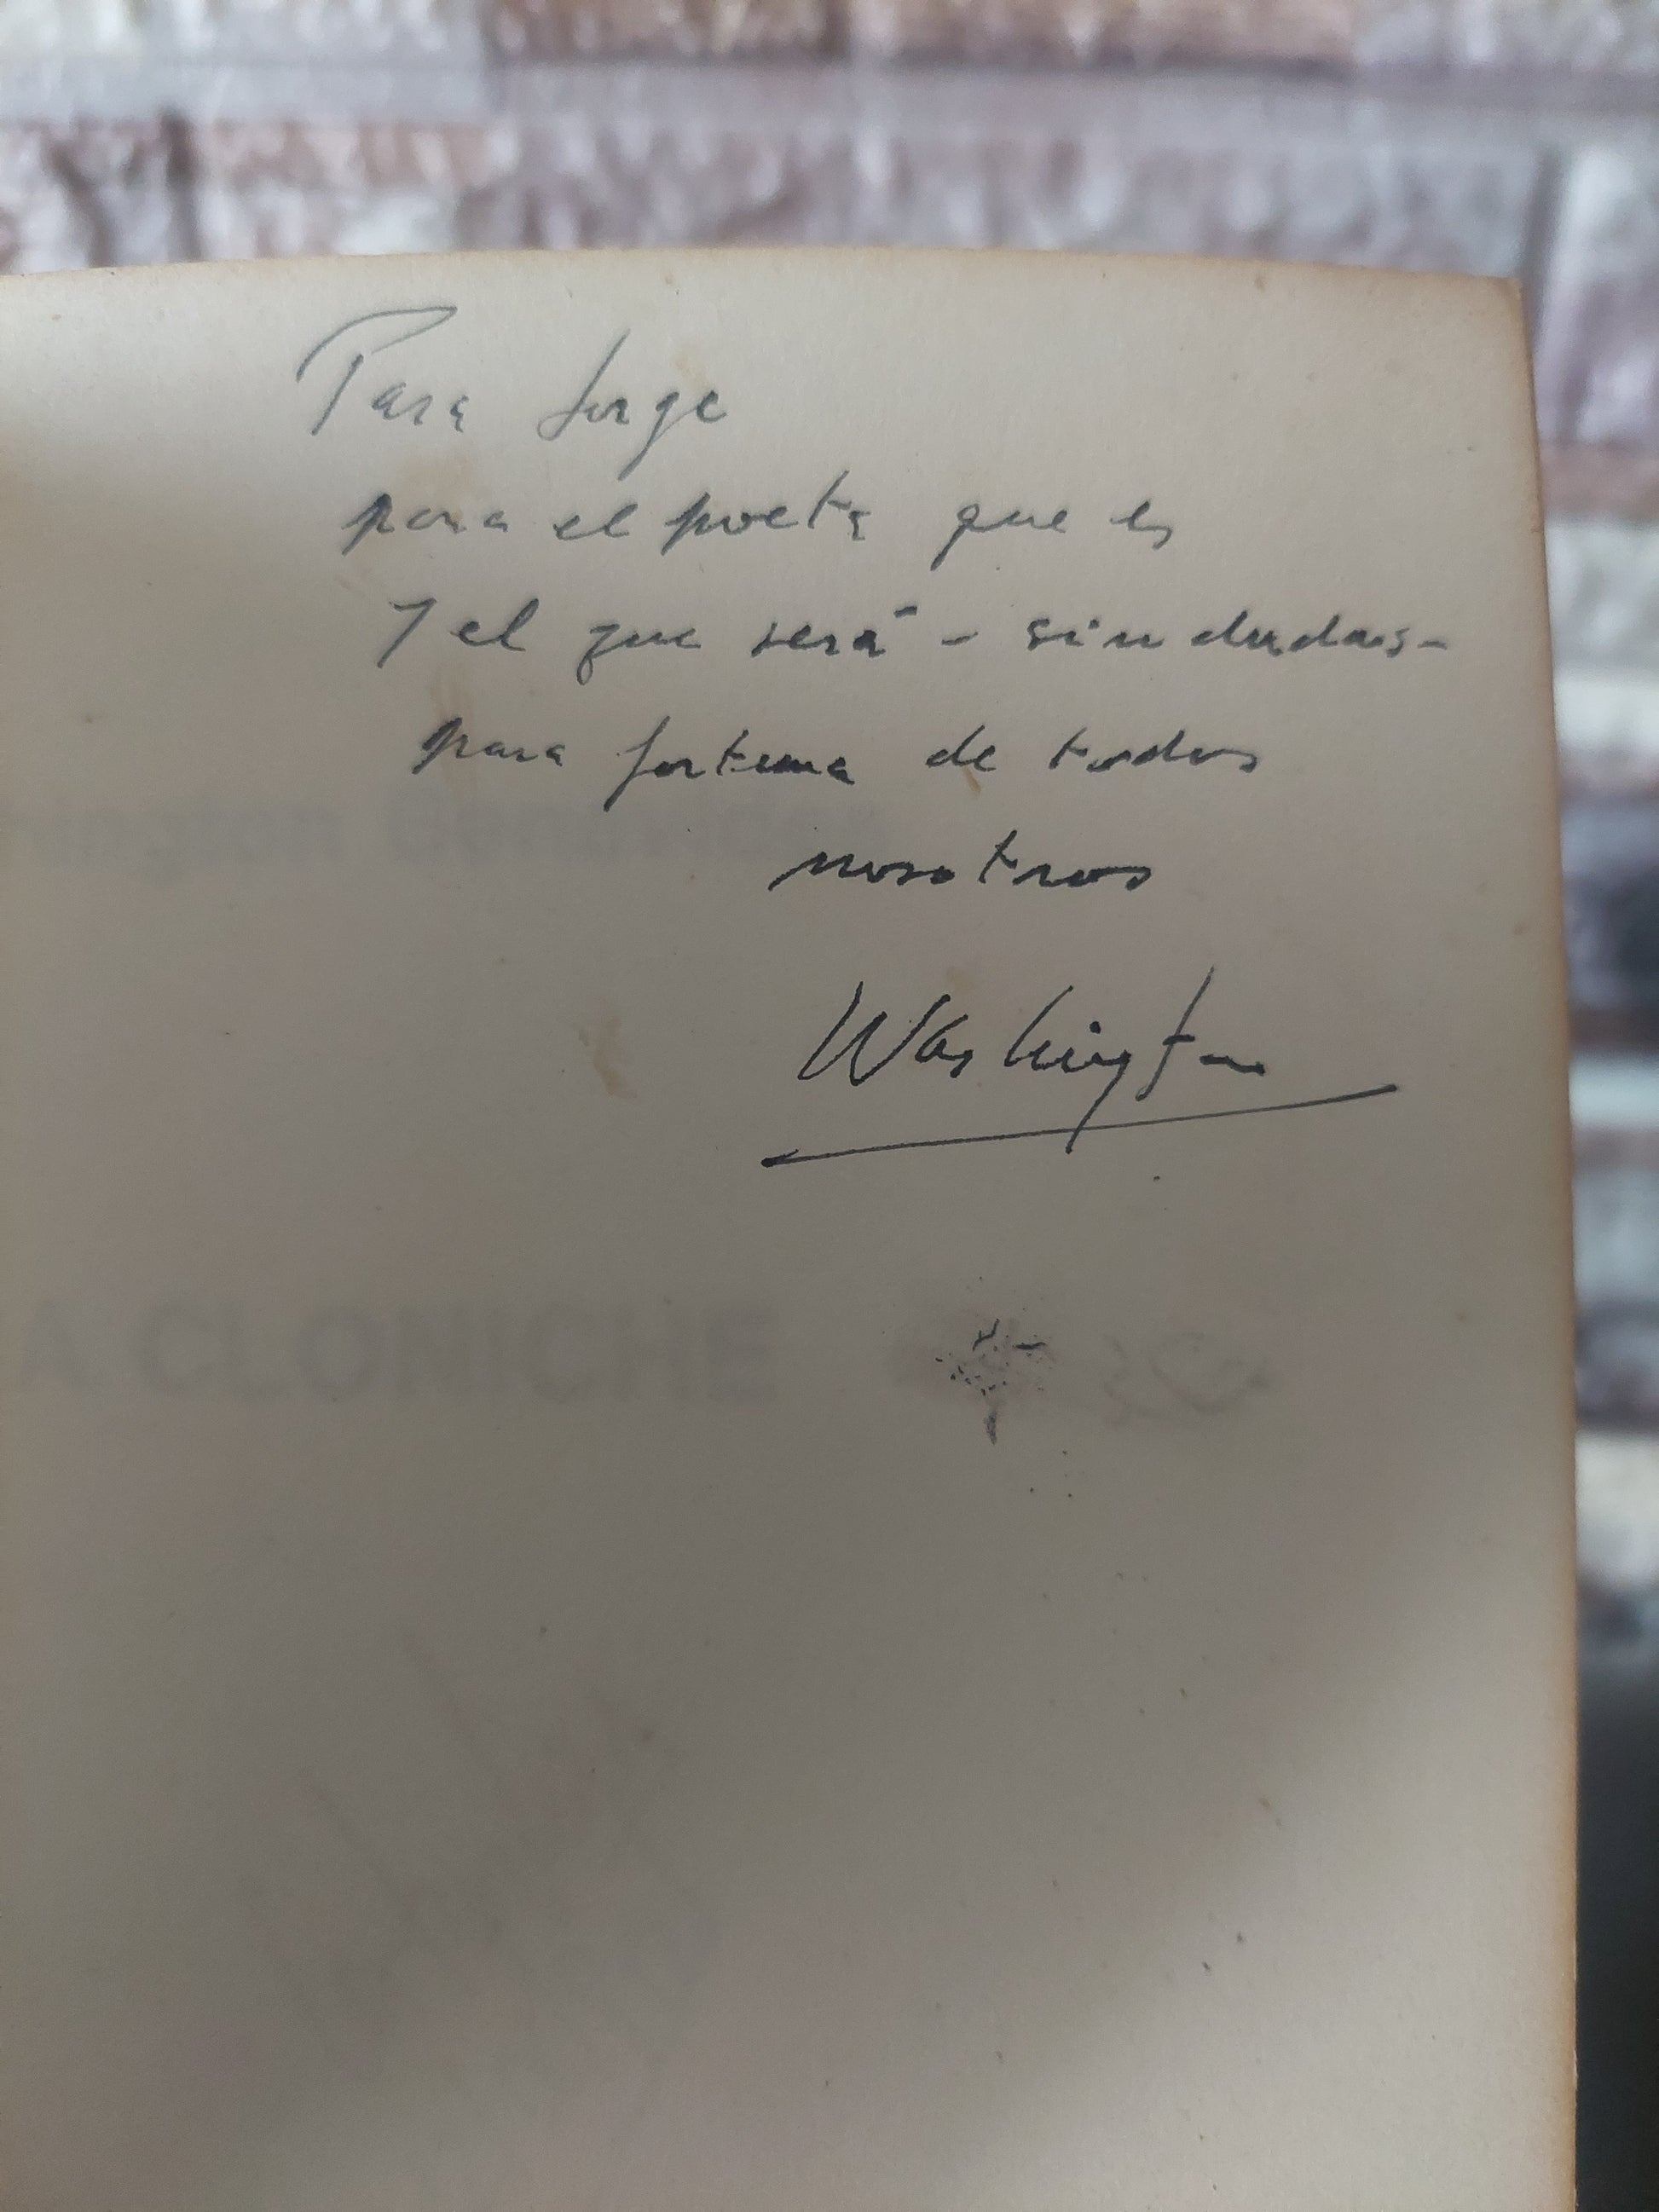 Para Jorge
para el poeta que es
y el que será - sin dudas -
para fortuna de todos
nosotros
Washington
A CLONICHE